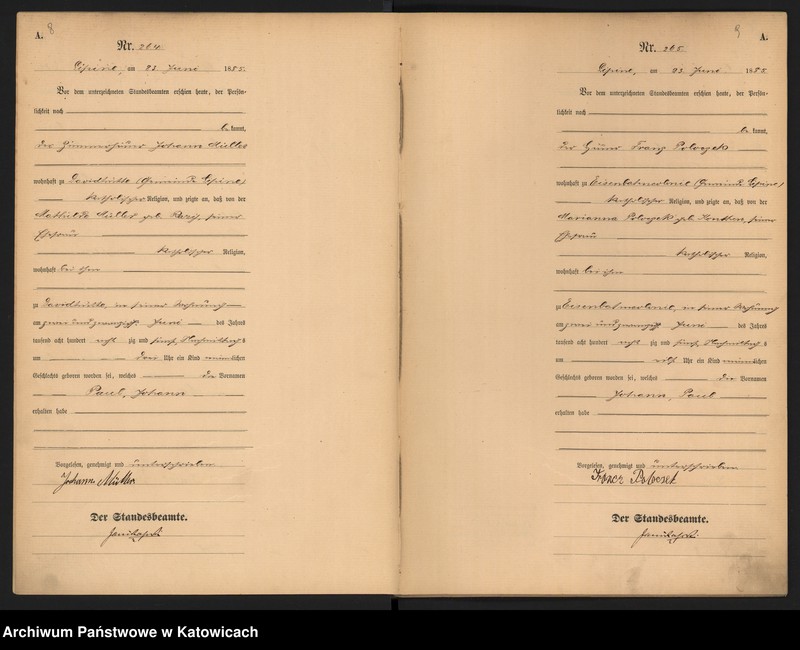 A. 8
Nr. 264
Lipine, am 23. Juni 1885.
Vor dem unterzeichneten Standesbeamten erschien heute, der Persön-
lichkeit nach
be kannt,
der Zimmerhäuer Johann Müller
wohnhaft zu Davidhütte (Gemeinde Lipine)
katholischer Religion, und zeigte an, daß von der
Mathilde Müller geb. seiner
Ehefrau
katholischer Religion,
wohnhaft bei ihm
zu Davidhütte, in seiner Wohnung
am zwei und zwanzigsten Juni des Jahres
tausend acht hundert acht zig und fünf Nachmittags
um drei Uhr ein Kind männlichen
Geschlechts geboren worden sei, welches die Vornamen
Paul, Johann
erhalten habe
Vorgelesen, genehmigt und unterschrieben
Johann Müller
Der Standesbeamte.
9 A.
Nr. 265
Lipine, am 23. Juni 1885
Vor dem unterzeichneten Standesbeamten erschien heute, der Persön-
lichkeit nach
be kannt,
der Häuer Franz
wohnhaft zu (Gemeinde Lipine)
katholischer Religion, und zeigte an, daß von der
Marianna geb. seiner
Ehefrau
katholischer Religion,
wohnhaft bei ihm
zu in seiner Wohnung
am zwei und zwanzigsten Juni des Jahres
tausend acht hundert acht zig und fünf Nachmittags
um elf Uhr ein Kind männlichen
Geschlechts geboren worden sei, welches die Vornamen
Johann, Paul
erhalten habe
Vorgelesen, genehmigt und unterschrieben
Der Standesbeamte.
Archiwum Państwowe w Katowicach